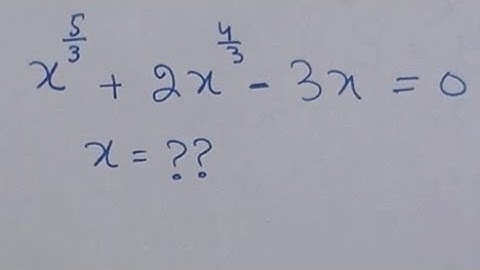 x^{5/3} + 2x^{4/3} - 3x = 0
x = ??